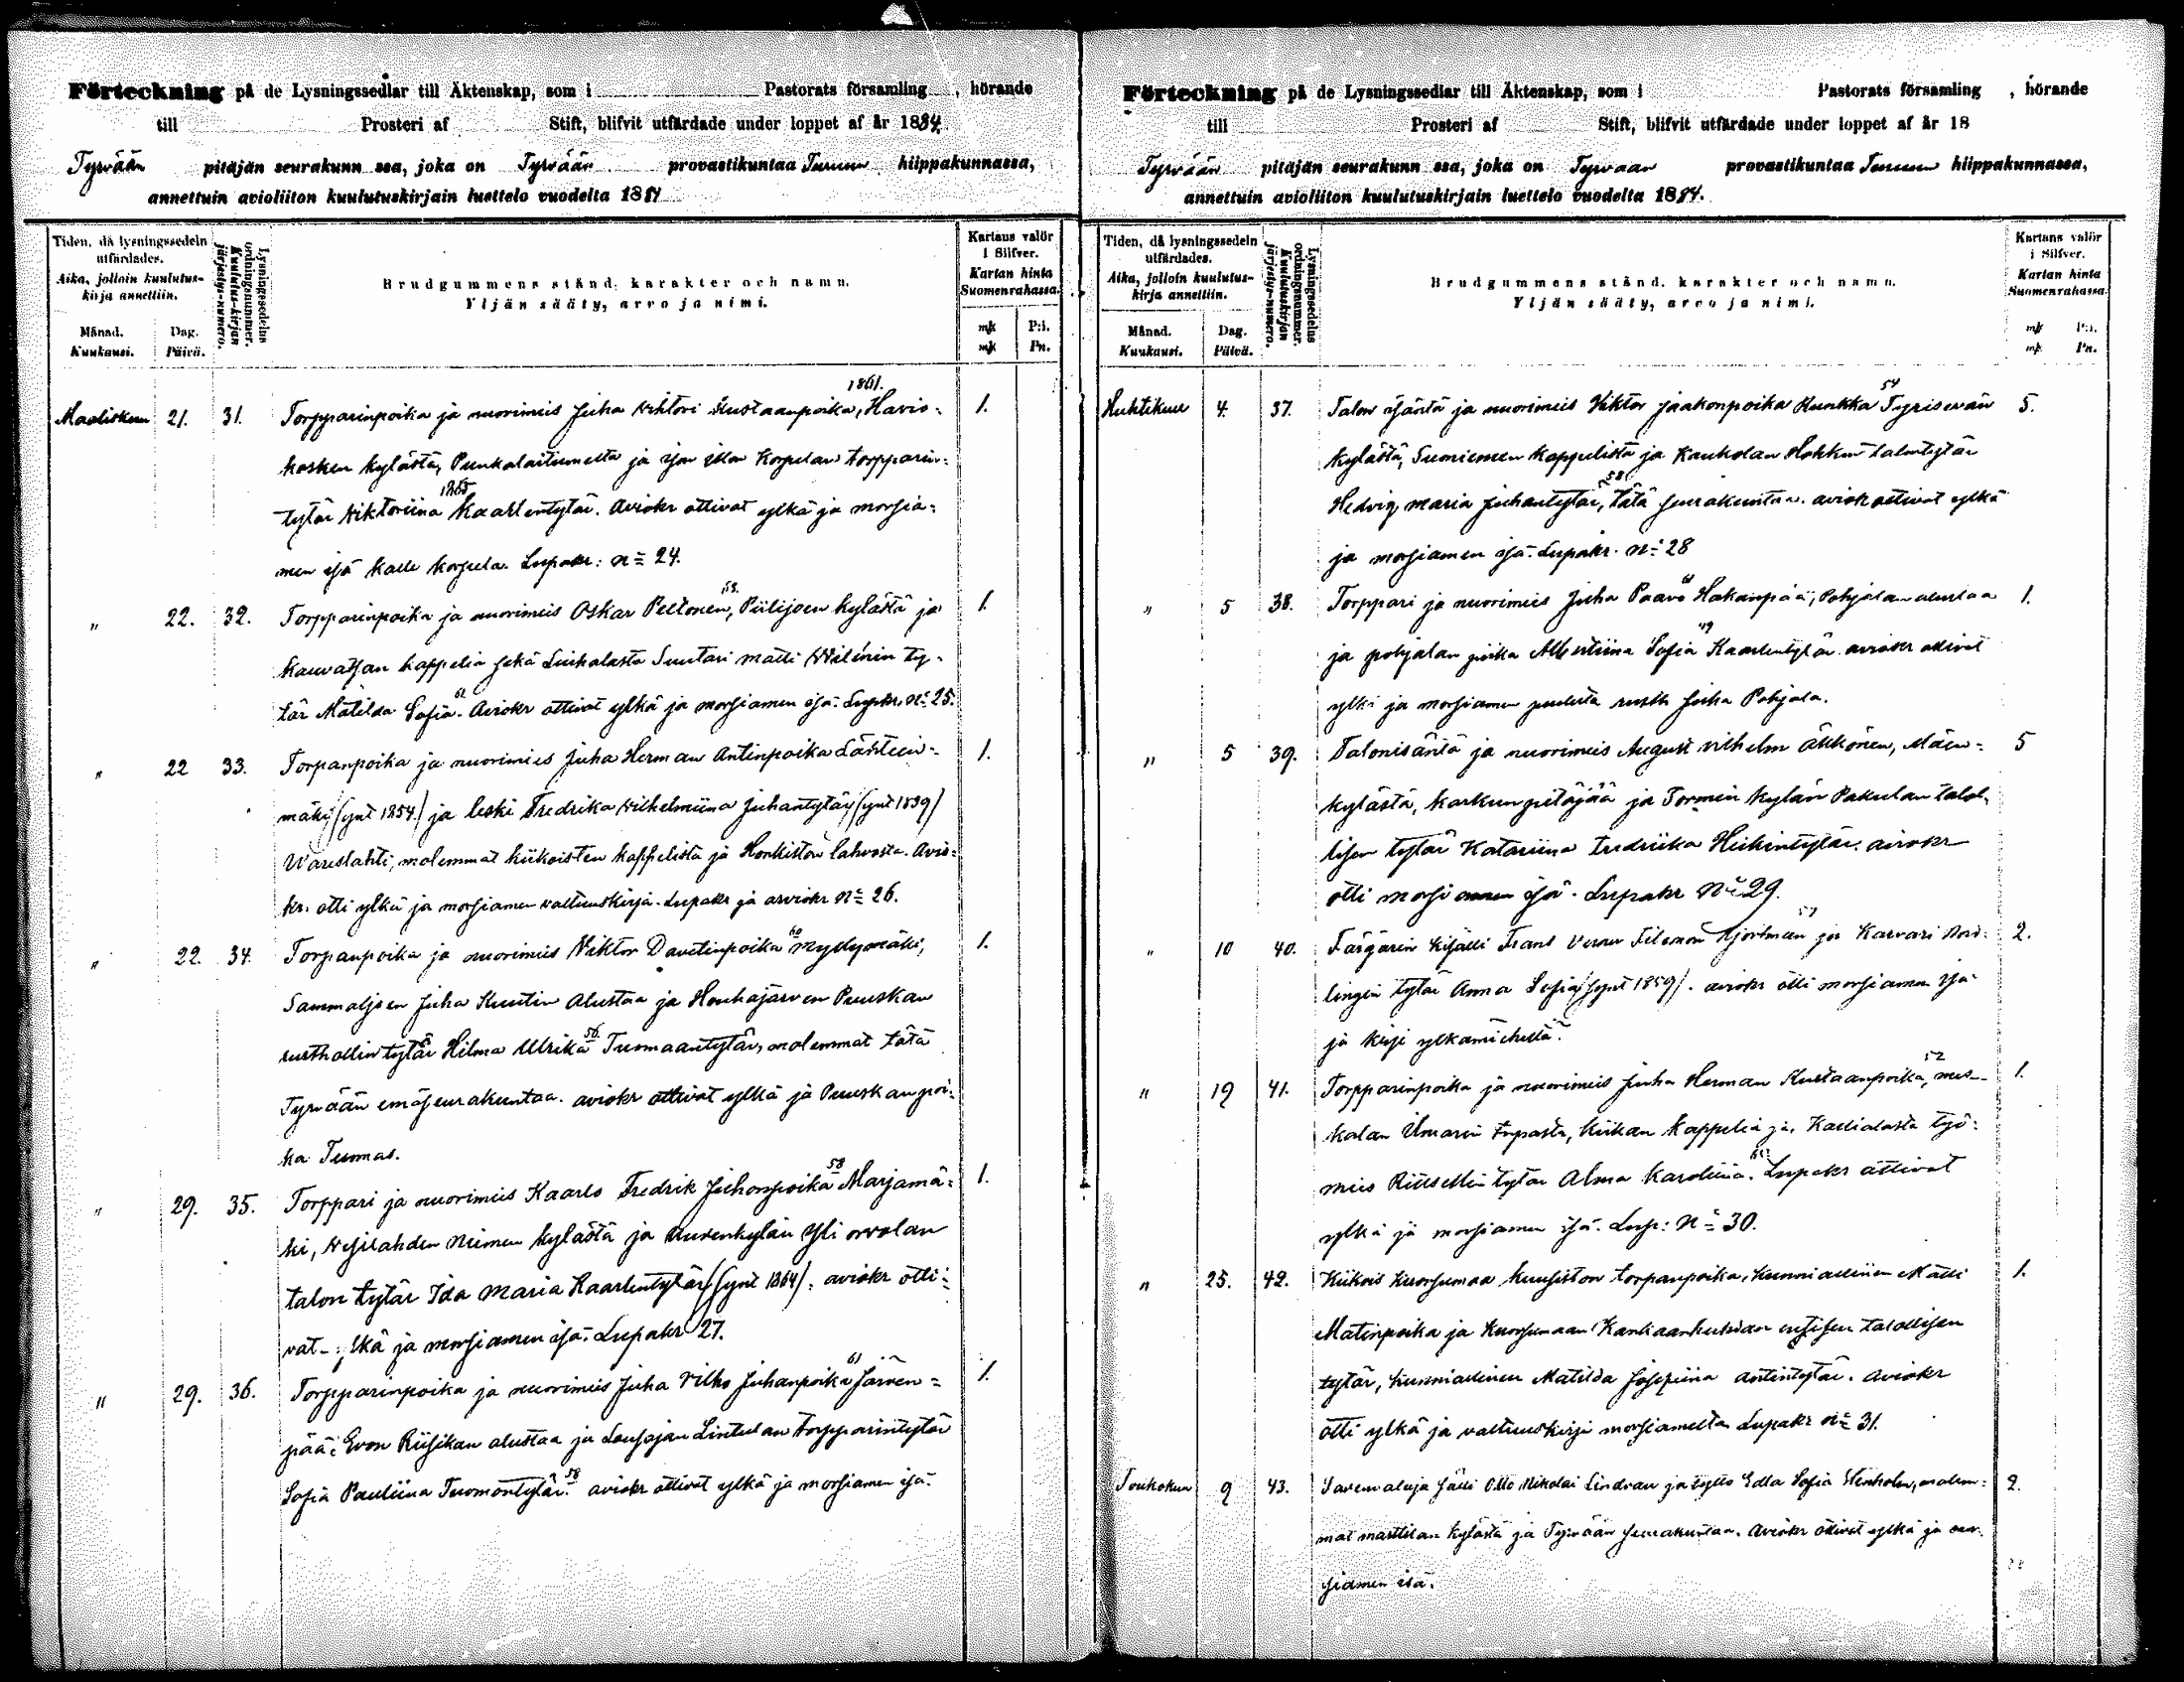 Förteckning på de Lysningssedlar till Äktenskap, som i Pastorats församling, hörande
till Prosteri af Stift, blifvit utfärdade under loppet af år 1884.
Tyrvään pitäjän seurakunn ssa, joka on Tyrvään provastikuntaa Turun hiippakunnassa,
annettuin avioliiton kuulutuskirjain luettelo vuodelta 1884
Tiden, då lysningssedeln utfärdades.
Aika, jolloin kuulutus-
kirja annettiin.
Månad. Dag.
Kuukausi. Päivä.
Lysningssedelns ordningsnummer.
Kuulutus-kirjan järjestys-numero.
Brudgummens stånd, karakter och namn.
Yljän sääty, arvo ja nimi.
Kartans valör i Silfver.
Kartan hinta Suomenrahassa.
mk P:i.
mk Pn.
1861.
Maaliskuu 21. 31. Torpparinpoika ja nuorimies Juha Vihtori Kustaanpoika, Havis- 1.
kosken kylästä, Punkalaitumelta ja Korpelan torpparin-
1865
tytär Viktoriina Kaarlentytär. Aviokr ottivat ylkä ja morsia-
men isä Kalle Korpela. Lupakr: n:o 24.
58.
" 22. 32. Torpparinpoika ja nuorimies Oskar Peltonen, Piilijoen kylästä ja 1.
Kauvatsan kappelia sekä Liuhalasta Suutari Matti Wilénin ty-
62
tär Matilda Sofia. Aviokr ottivat ylkä ja morsiamen isä. Lupakr. n:o 25.
" 22 33. Torpanpoika ja nuorimies Juha Herman Antinpoika Lähteen- 1.
mäki, (synt 1854) ja leski Fredrika Vilhelmiina Juhantytär (synt 1839)
Wareslahti, molemmat Kiikoisten kappelista ja Honkiston lahvosta. Avio-
kr. otti ylkä ja morsiamen valtuuskirja. Lupakr ja aviokr n:o 26.
60
" 22. 34. Torpanpoika ja nuorimies Viktor Daavetinpoika Myllymäki, 1.
Sammaljoen Juha Kuutin alustaa ja Houhajärven Puuskan
56
rusthollin tytär Hilma Ulrika Tuomaantytär, molemmat tätä
Tyrvään emäseurakuntaa. aviokr ottivat ylkä ja Puuskan poi-
ka Tuomas.
58
" 29. 35. Torppari ja nuorimies Kaarlo Fredrik Juhonpoika Marjamä- 1.
ki, Vesilahden Niemen kylästä ja Uudenkylän Yli orvolan
talon tytär Ida Maria Kaarlentytär (synt 1864). aviokr otti-
vat ylkä ja morsiamen isä. Lupakr 27.
61
" 29. 36. Torpparinpoika ja nuorimies Juha Vilho Juhanpoika Järven- 1.
pää, Evon Riisikan alustaa ja Lousajan Lintulan torpparintytär
58
Sofia Pauliina Tuomontytär. aviokr ottivat ylkä ja morsiamen isä.
Förteckning på de Lysningssedlar till Äktenskap, som i Pastorats församling, hörande
till Prosteri af Stift, blifvit utfärdade under loppet af år 18
Tyrvään pitäjän seurakunn ssa, joka on Tyrvään provastikuntaa Turun hiippakunnassa,
annettuin avioliiton kuulutuskirjain luettelo vuodelta 1884.
Tiden, då lysningssedeln utfärdades.
Aika, jolloin kuulutus-
kirja annettiin.
Månad. Dag.
Kuukausi. Päivä.
Lysningssedelns ordningsnummer.
Kuulutuskirjan järjestys-numero.
Brudgummens stånd, karakter och namn.
Yljän sääty, arvo ja nimi.
Kartans valör i Silfver.
Kartan hinta Suomenrahassa.
mk P:i.
mk Pn.
54
Huhtikuu 4. 37. Talon isäntä ja nuorimies Viktor Jaakonpoika Kunkka Tyrisevän 5.
kylästä, Suoniemen kappelista ja Kaukolan Hohkun talontytär
58
Hedvig Maria Juhantytär, tätä seurakuntaa. aviokr ottivat ylkä
ja morsiamen isä. Lupakr. n:o 28
" 5 38. Torppari ja nuorimies Juha Paavo Hakanpää, Pohjalan alustaa 1.
49
ja pohjalan piika Albertiina Sofia Kaarlentytär. aviokr ottivat
ylkä ja morsiamen puolesta rusth Juha Pohjala.
" 5 39. Talonisäntä ja nuorimies August Vilhelm Äkkönen, Mäen- 5
kylästä, Karkun pitäjää ja Tormin kylän Pakulan talol-
lisen tytär Katariina Fredriika Heikintytär. aviokr
otti morsiamen isä. Lupakr n:o 29.
57
" 10 40. Färgärin kisälli Frans Verner Filemon Hjortmeen ja Karvari Nord- 2.
lingin tytär Anna Sofia (synt 1859). aviokr otti morsiamen isä
ja kirje ylkämieheltä.
52
" 19 41. Torpparinpoika ja nuorimies Juha Herman Kustaanpoika, Mus- 1.
kalan Ilmarin tupasta, Kiikan kappelia ja Kallialasta työ-
mies Riitsellin tytär Alma Karoliina. Lupakr ottivat
ylkä ja morsiamen isä. Lup: n:o 30.
" 25. 42. Kiikois Kuorsumaa Kuusiston torpanpoika, kunniallinen Matti 1.
Matinpoika ja Kuorsumaan Kankaanhuhdan entisen talollisen
tytär, kunniallinen Matilda Josepiina Antintytär. aviokr
otti ylkä ja valtuuskirje morsiamelta Lupakr n:o 31.
Toukokuu 9 43. Savenvalaja sälli Otto Nikolai Lindvan ja tyttö Edla Sofia Stenholm, molem- 2.
mat marttilan kylästä ja Tyrvään seurakuntaa. Aviokr ottivat ylkä ja mor-
siamen isä.